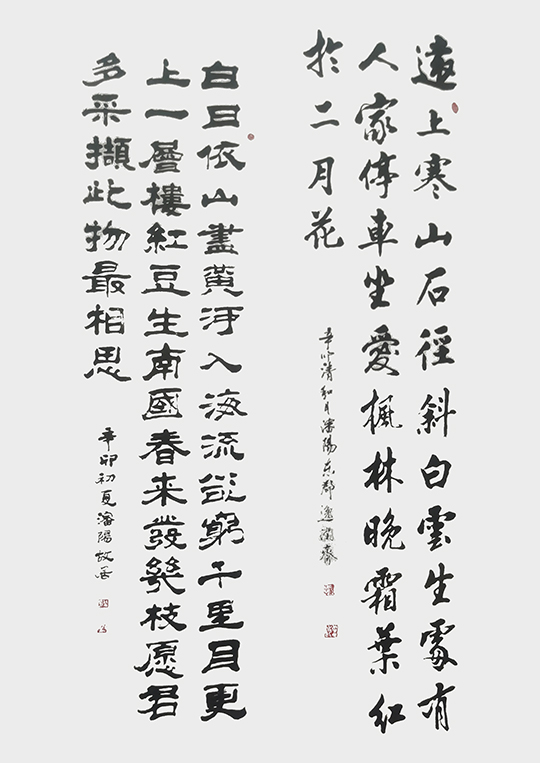 遠上寒山石徑斜白雲生處有
人家停車坐愛楓林晚霜葉紅
於二月花
辛卯清和月瀋陽东都
白日依山盡黄河入海流欲窮千里目更
上一層樓紅豆生南國春来發幾枝愿君
多采擷此物最相思
辛卯初夏瀋陽故居